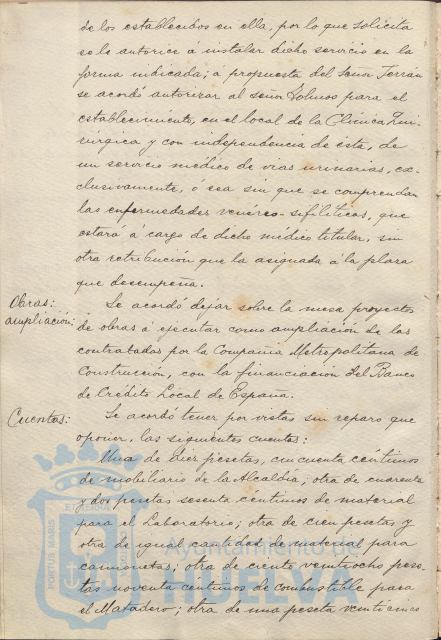 de los establecidos en ella, por lo que solicita
se le autorice a instalar dicho servicio en la
forma indicada; a propuesta del Señor Terrán
se acordó autorizar al señor Holmos para el
establecimiento, en el local de la Clínica Qui-
rúrgica y con independencia de esta, de
un servicio médico de vias urinarias, ex-
clusivamente, ó sea sin que se comprendan
las enfermedades venéreo-sifiliticas, que
estará á cargo de dicho médico titular, sin
otra retribución que la asignada á la plaza
que desempeña.
Obras: ampliación:
Se acordó dejar sobre la mesa proyectos
de obras á ejecutar como ampliación de las
contratadas por la Compañia Metropolitana de
Construcción, con la financiación del Banco
de Crédito Local de España.
Cuentas:
Se acordó tener por vistas sin reparo que
oponer, las siguientes cuentas:
Una de diez pesetas, cincuenta centimos
de mobiliario de la Alcaldía; otra de cuarenta
y dos pesetas sesenta céntimos de material
para el Laboratorio; otra de cien pesetas y
otra de igual cantidad de material para
camionetas; otra de ciento veintiocho pese-
tas noventa centimos de combustible para
el Matadero; otra de una peseta veinticinco
PORTUS MARIS ET TERRAE
Ayuntamiento de
HUELVA